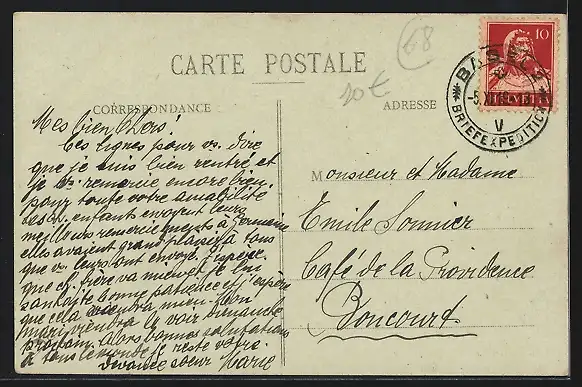 68
10
BASEL 2
BRIEFEXPEDITION
V
HELVETIA
CARTE POSTALE
20€
CORRESPONDANCE
ADRESSE
Mes bien Chers!
Ces lignes pour vs. dire
que je suis bien rentré et
je vs. remercie encore bien
pour toute votre amabilité
les enfants envoyent leurs
meilleurs remerciements à Germaine
elles avaient grand plaisir à tous
que vs. leurs ont envoyé. J'espère
que ch. frère va mieux, je lui
souhaite bonne patience et j'espère
que cela viendra mieu. Mon
mari viendra le voir dimanche
prochain. Alors bonnes salutations
à tous le monde je reste votre
soeur Marie
Monsieur et Madame
Emile Sonnier
Café de la Providence
Boncourt